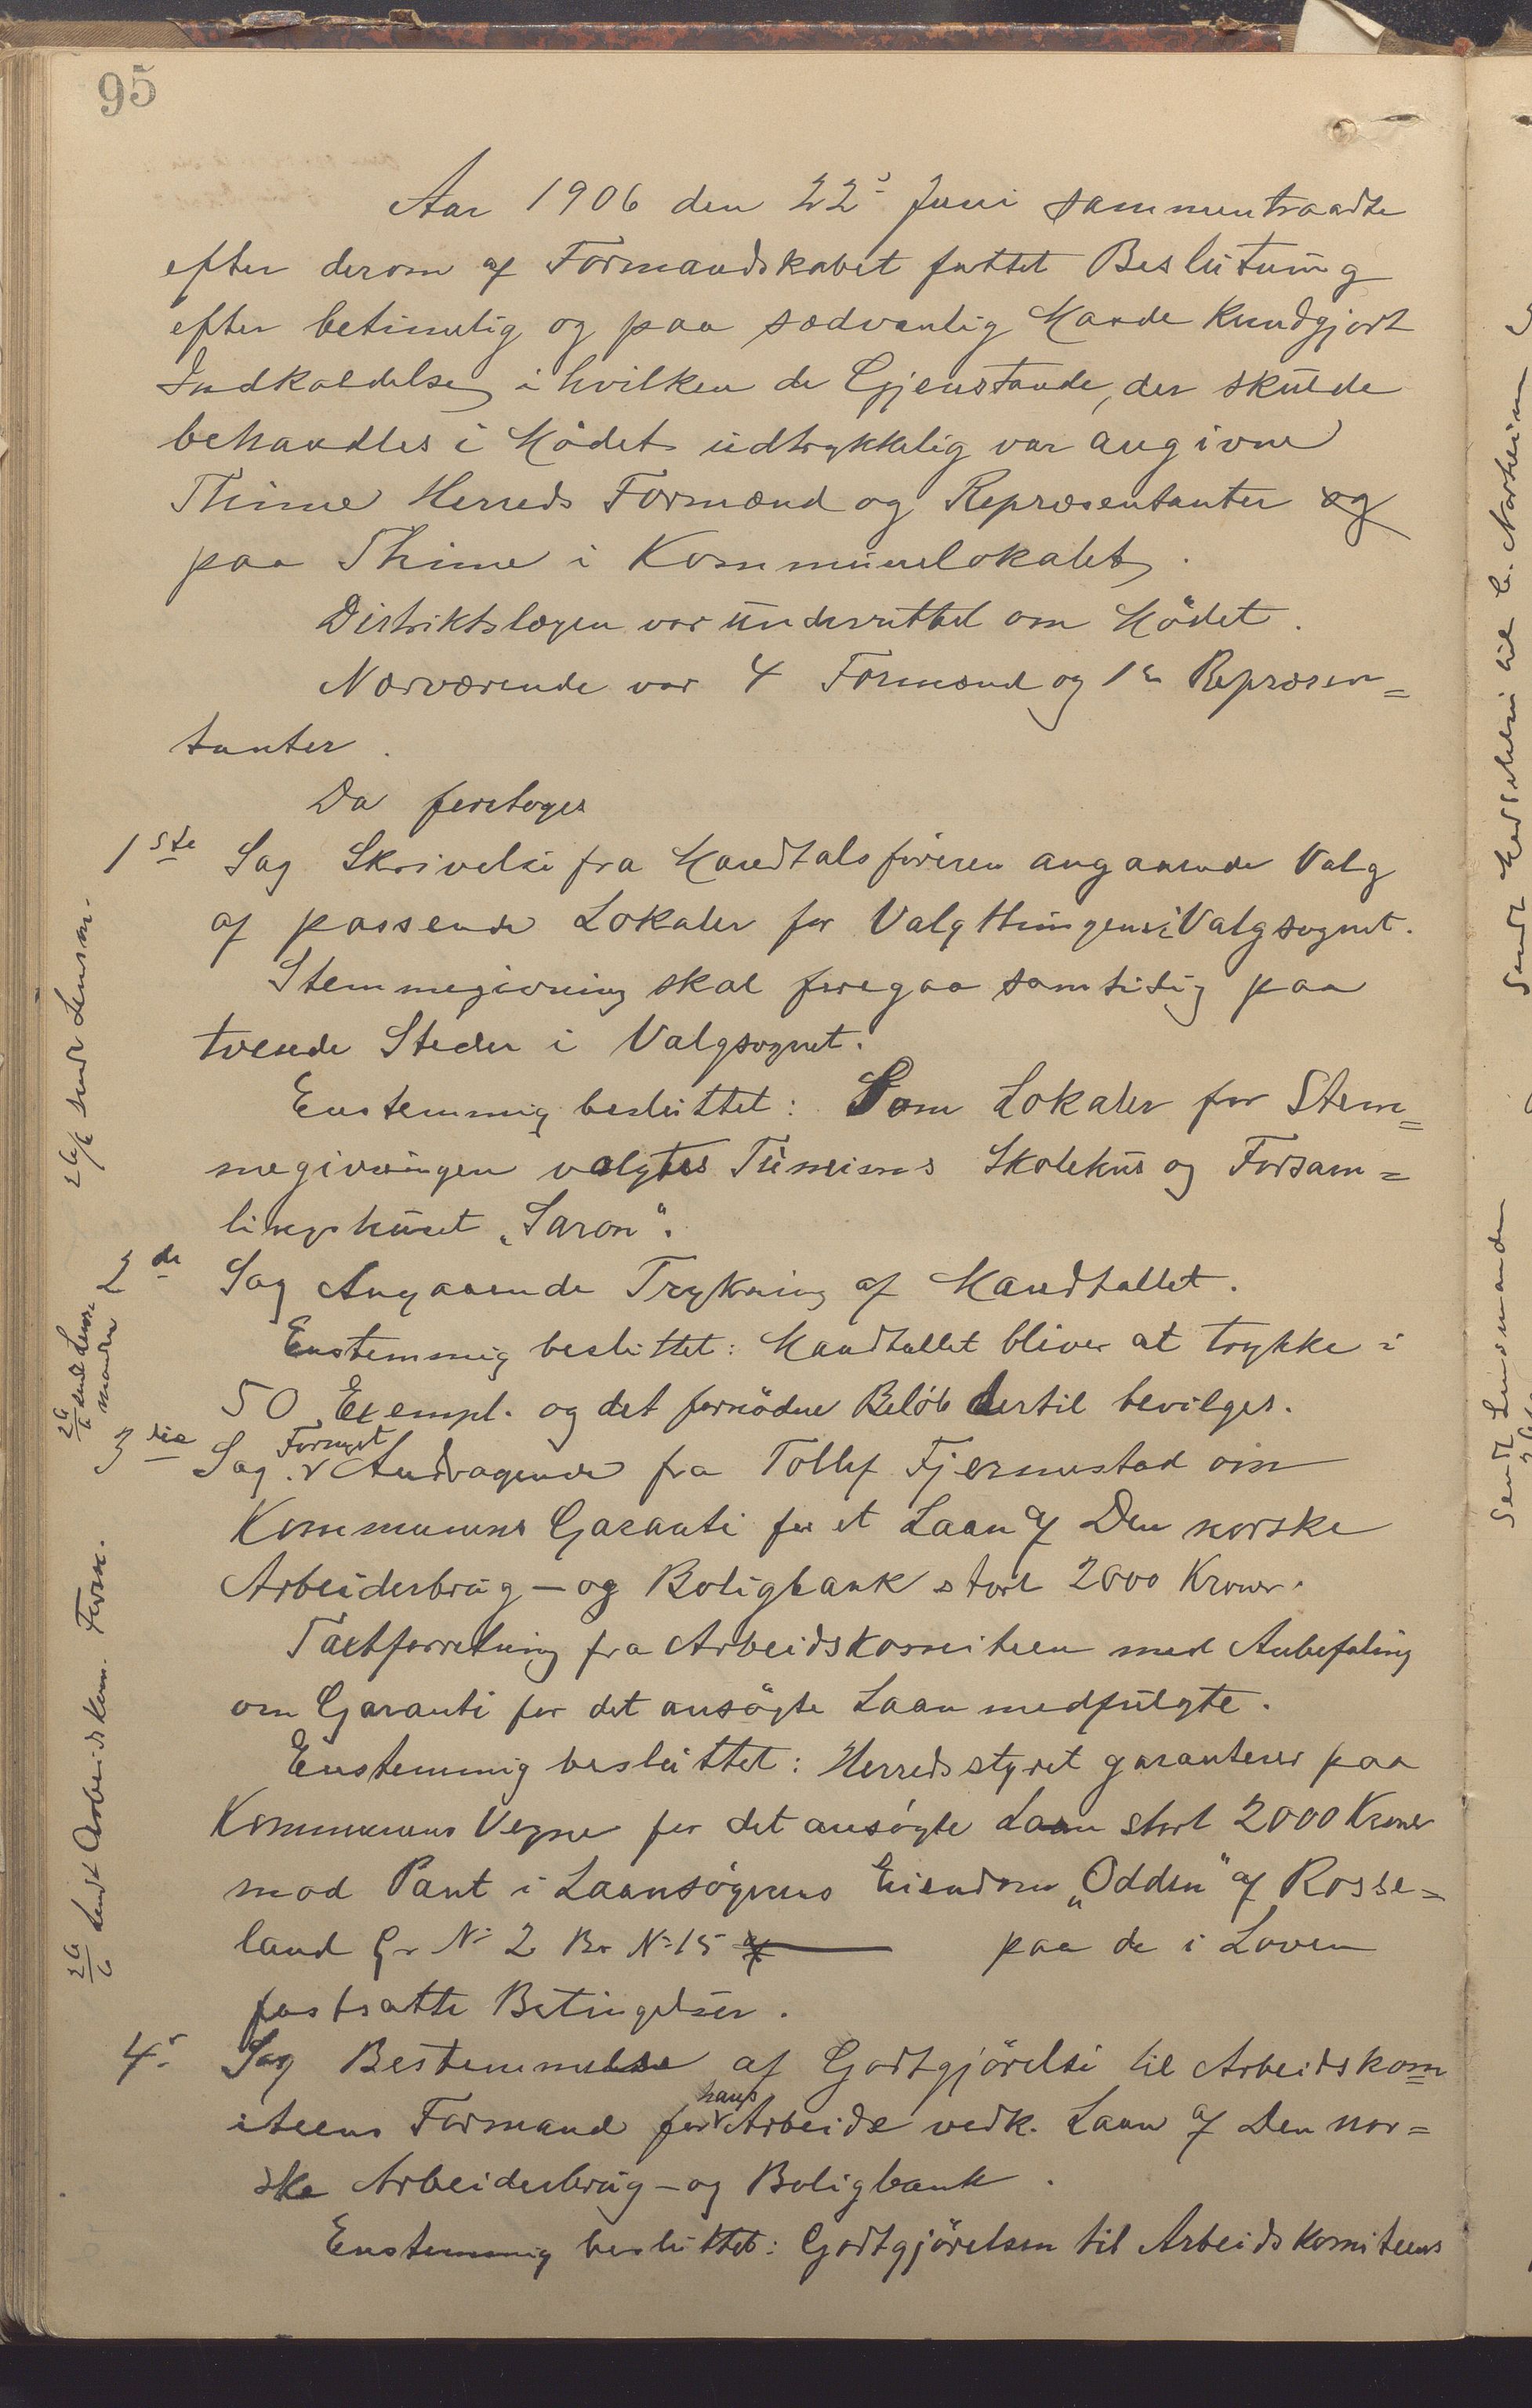 95
Aar 1906 den 22- Juni sammentraadte
efter derom af Formandskabet fattet Beslutning
efter betimelig og paa sædvanlig Maade kundgjort
Indkaldelse i hvilken de Gjenstande, der skulde
behandles i Mødet udtrykkelig var angivne
Thime Herreds Formænd og Repræsentanter og
paa Thime i Kommunelokalet.
Distriktslægen var underrettet om Mødet.
Nærværende var 4 Formænd og Repræsen=
tanter.
Da foretoges
1ste Sag Skrivelse fra Mandtalsføreren angaaende Valg
af passende Lokaler for Valgthingene i Valgsognet.
Stemmegivning skal foregaa samtidig paa
tvende Steder i Valgsognet.
Enstemmig besluttet: Som Lokaler for Stem=
megivningen valgtes Tunheims Skolehus og Forsam=
lingshuset „Saron“.
26/6 sendt Lensm.
2de Sag Angaaende Trykning af Mandtallet.
Enstemmig besluttet: Mandtallet bliver at trykke i
50 Exempl. og det fornødne Beløb dertil bevilges.
26/6 sendt Lens
manden
3die Sag. Fornyet Andragende fra Tollef Fjermestad om
Kommunens Garanti for et Laan af Den norske
Arbeiderbrug – og Boligbank stort 2000 Kroner.
Taxtforretning fra Arbeidskomiteen med Anbefaling
om Garanti for det ansøgte Laan medfulgte.
Enstemmig besluttet: Herredsstyret garanterer paa
Kommunens Vegne for det ansøgte Laan stort 2000 Kroner
mod Pant i Laansøgerens Eiendom „Odden“ af Rosse=
land Gr No 2 Br No 15 af paa de i Loven
fastsatte Betingelser.
26/6 sendt Arbeidskom. Form.
4- Sag Bestemmelse af Godtgjørelse til Arbeidskom
iteens Formand for hans Arbeide vedk. Laan af Den nor=
ske Arbeiderbrug – og Boligbank.
Enstemmig besluttet: Godtgjørelsen til Arbeidskomiteens
Sendt Lensmanden